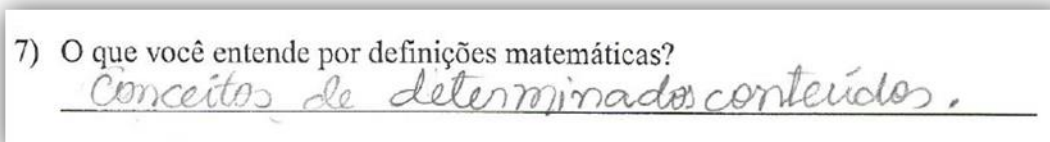 7) O que você entende por definições matemáticas?
Conceitos de determinados conteúdos.